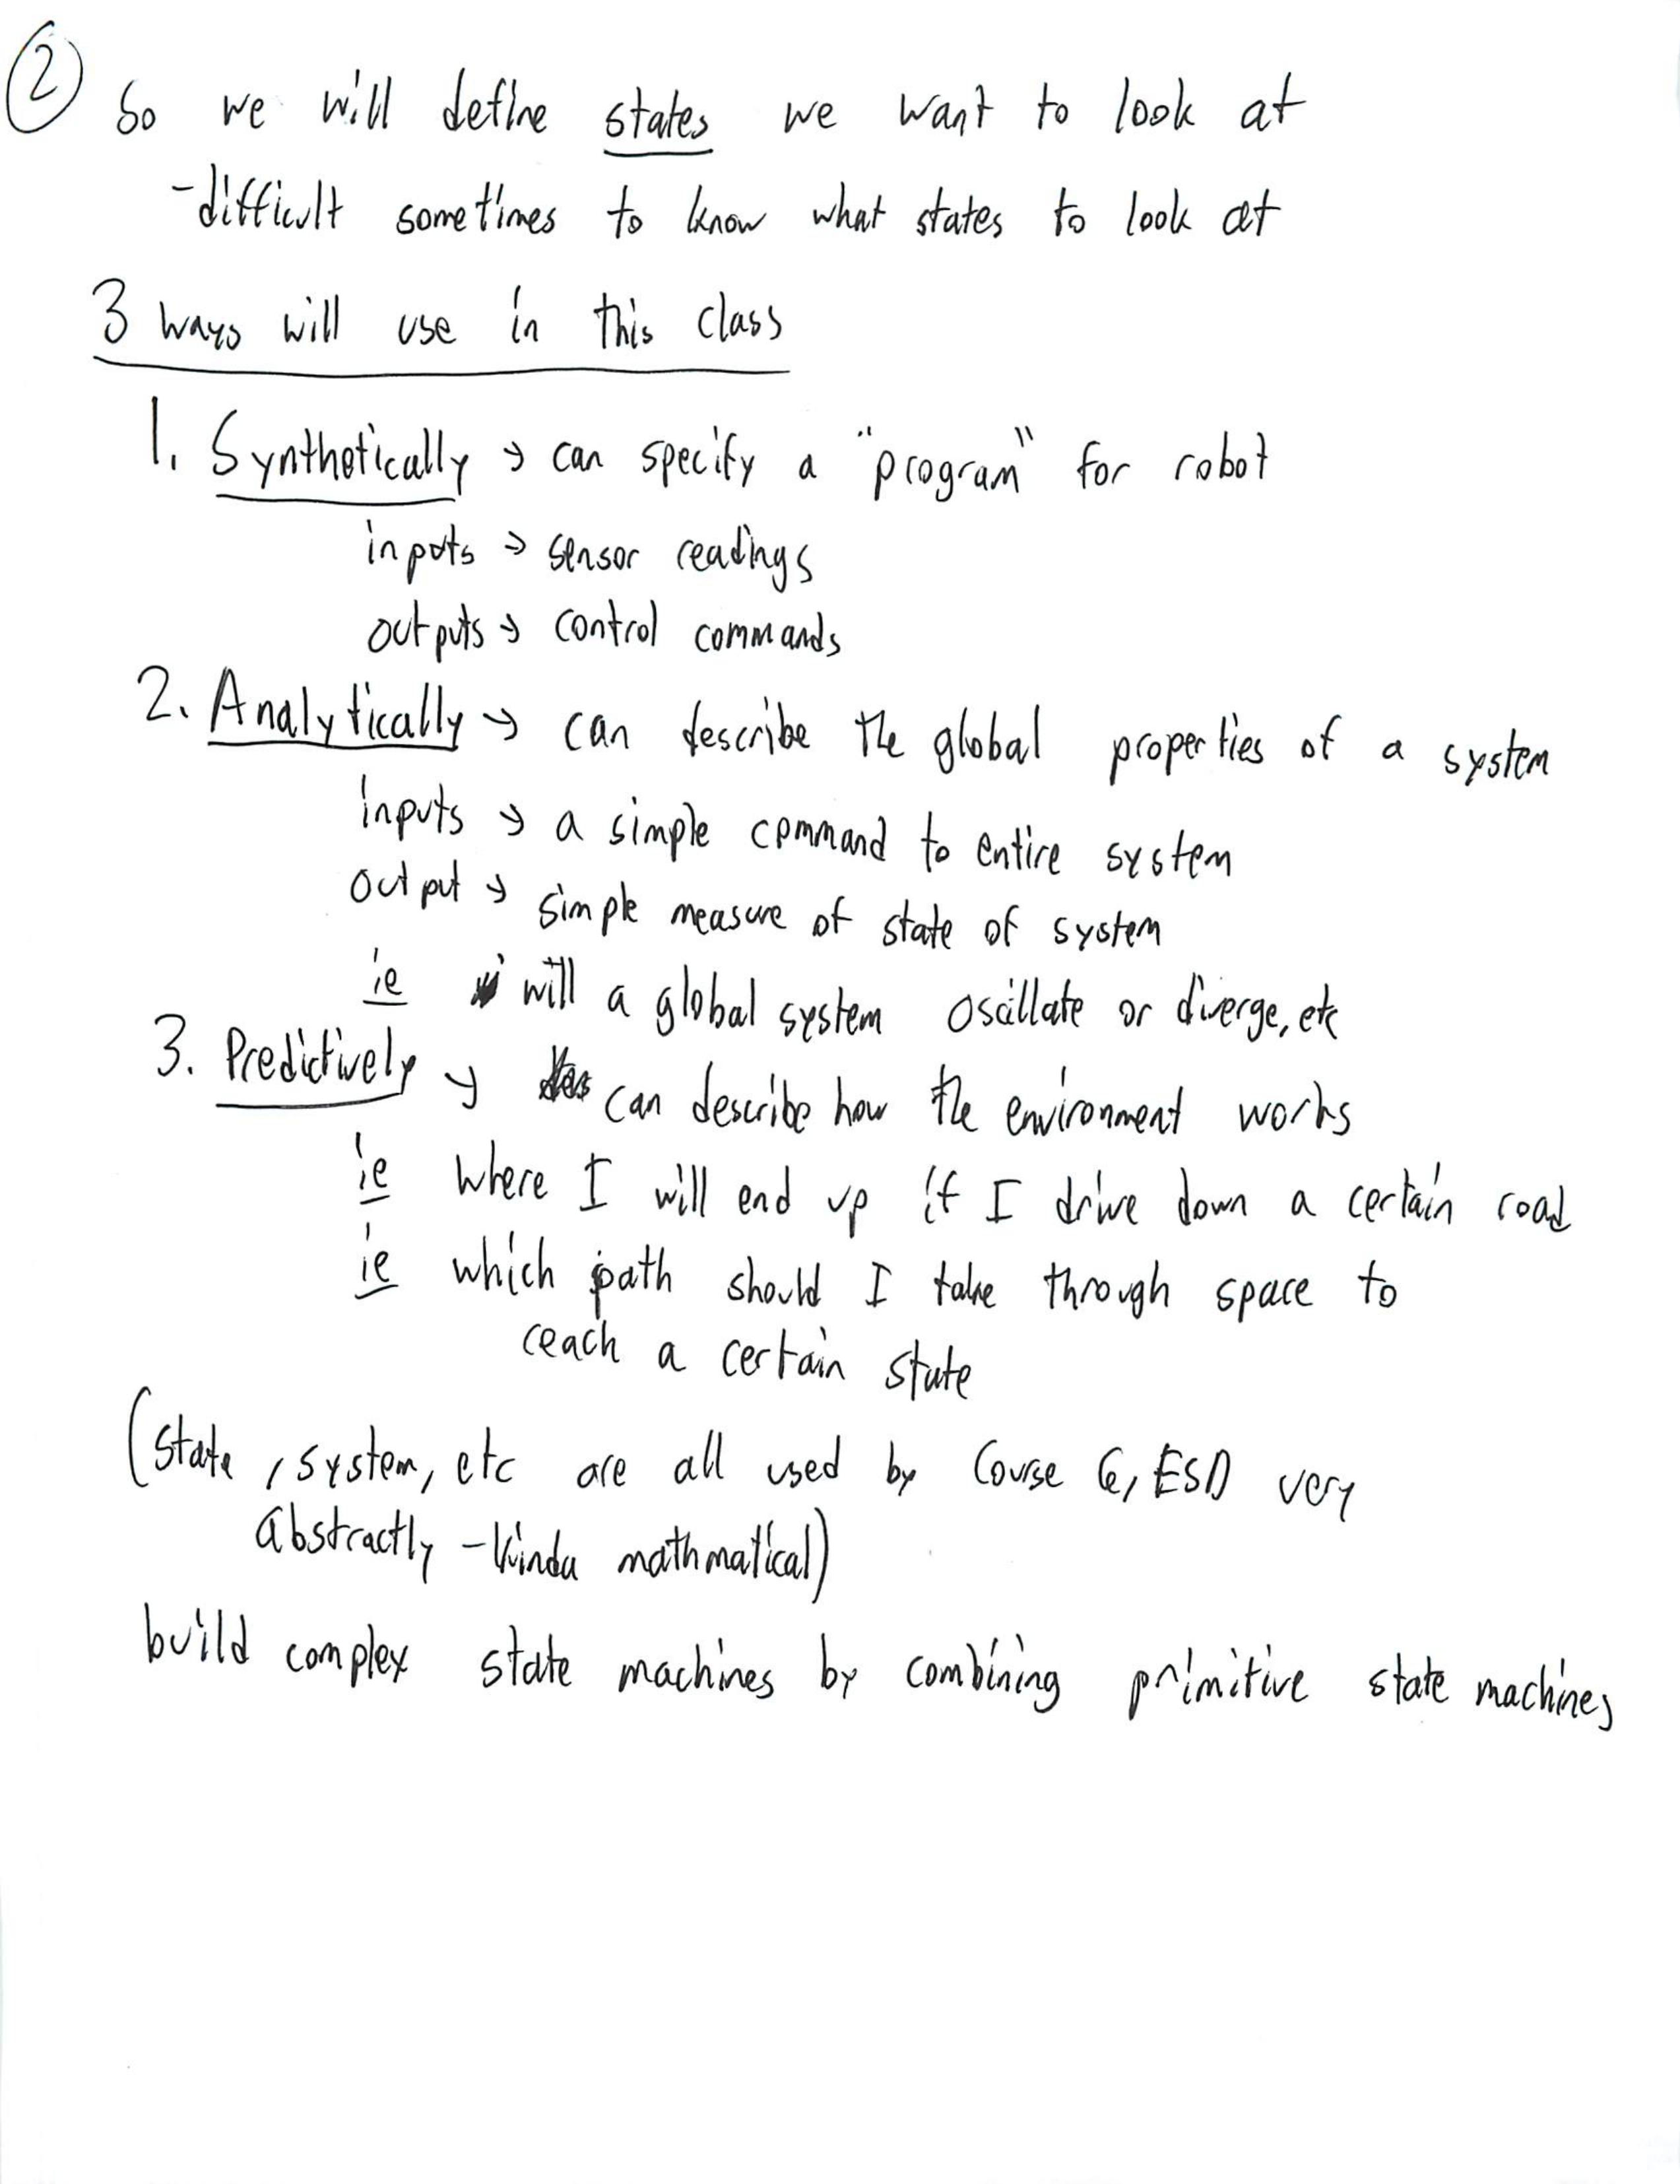 ②
So we will define states we want to look at
-difficult sometimes to know what states to look at
3 ways will use in this class
1. Synthetically → can specify a "program" for robot
inputs → sensor readings
outputs → control commands
2. Analytically → can describe the global properties of a system
inputs → a simple command to entire system
output → simple measure of state of system
ie will a global system oscillate or diverge, etc
3. Predictively → can describe how the environment works
ie where I will end up if I drive down a certain road
ie which path should I take through space to
reach a certain state
(state, system, etc are all used by Course 6, ESD very
abstractly -kinda mathmatical)
build complex state machines by combining primitive state machines